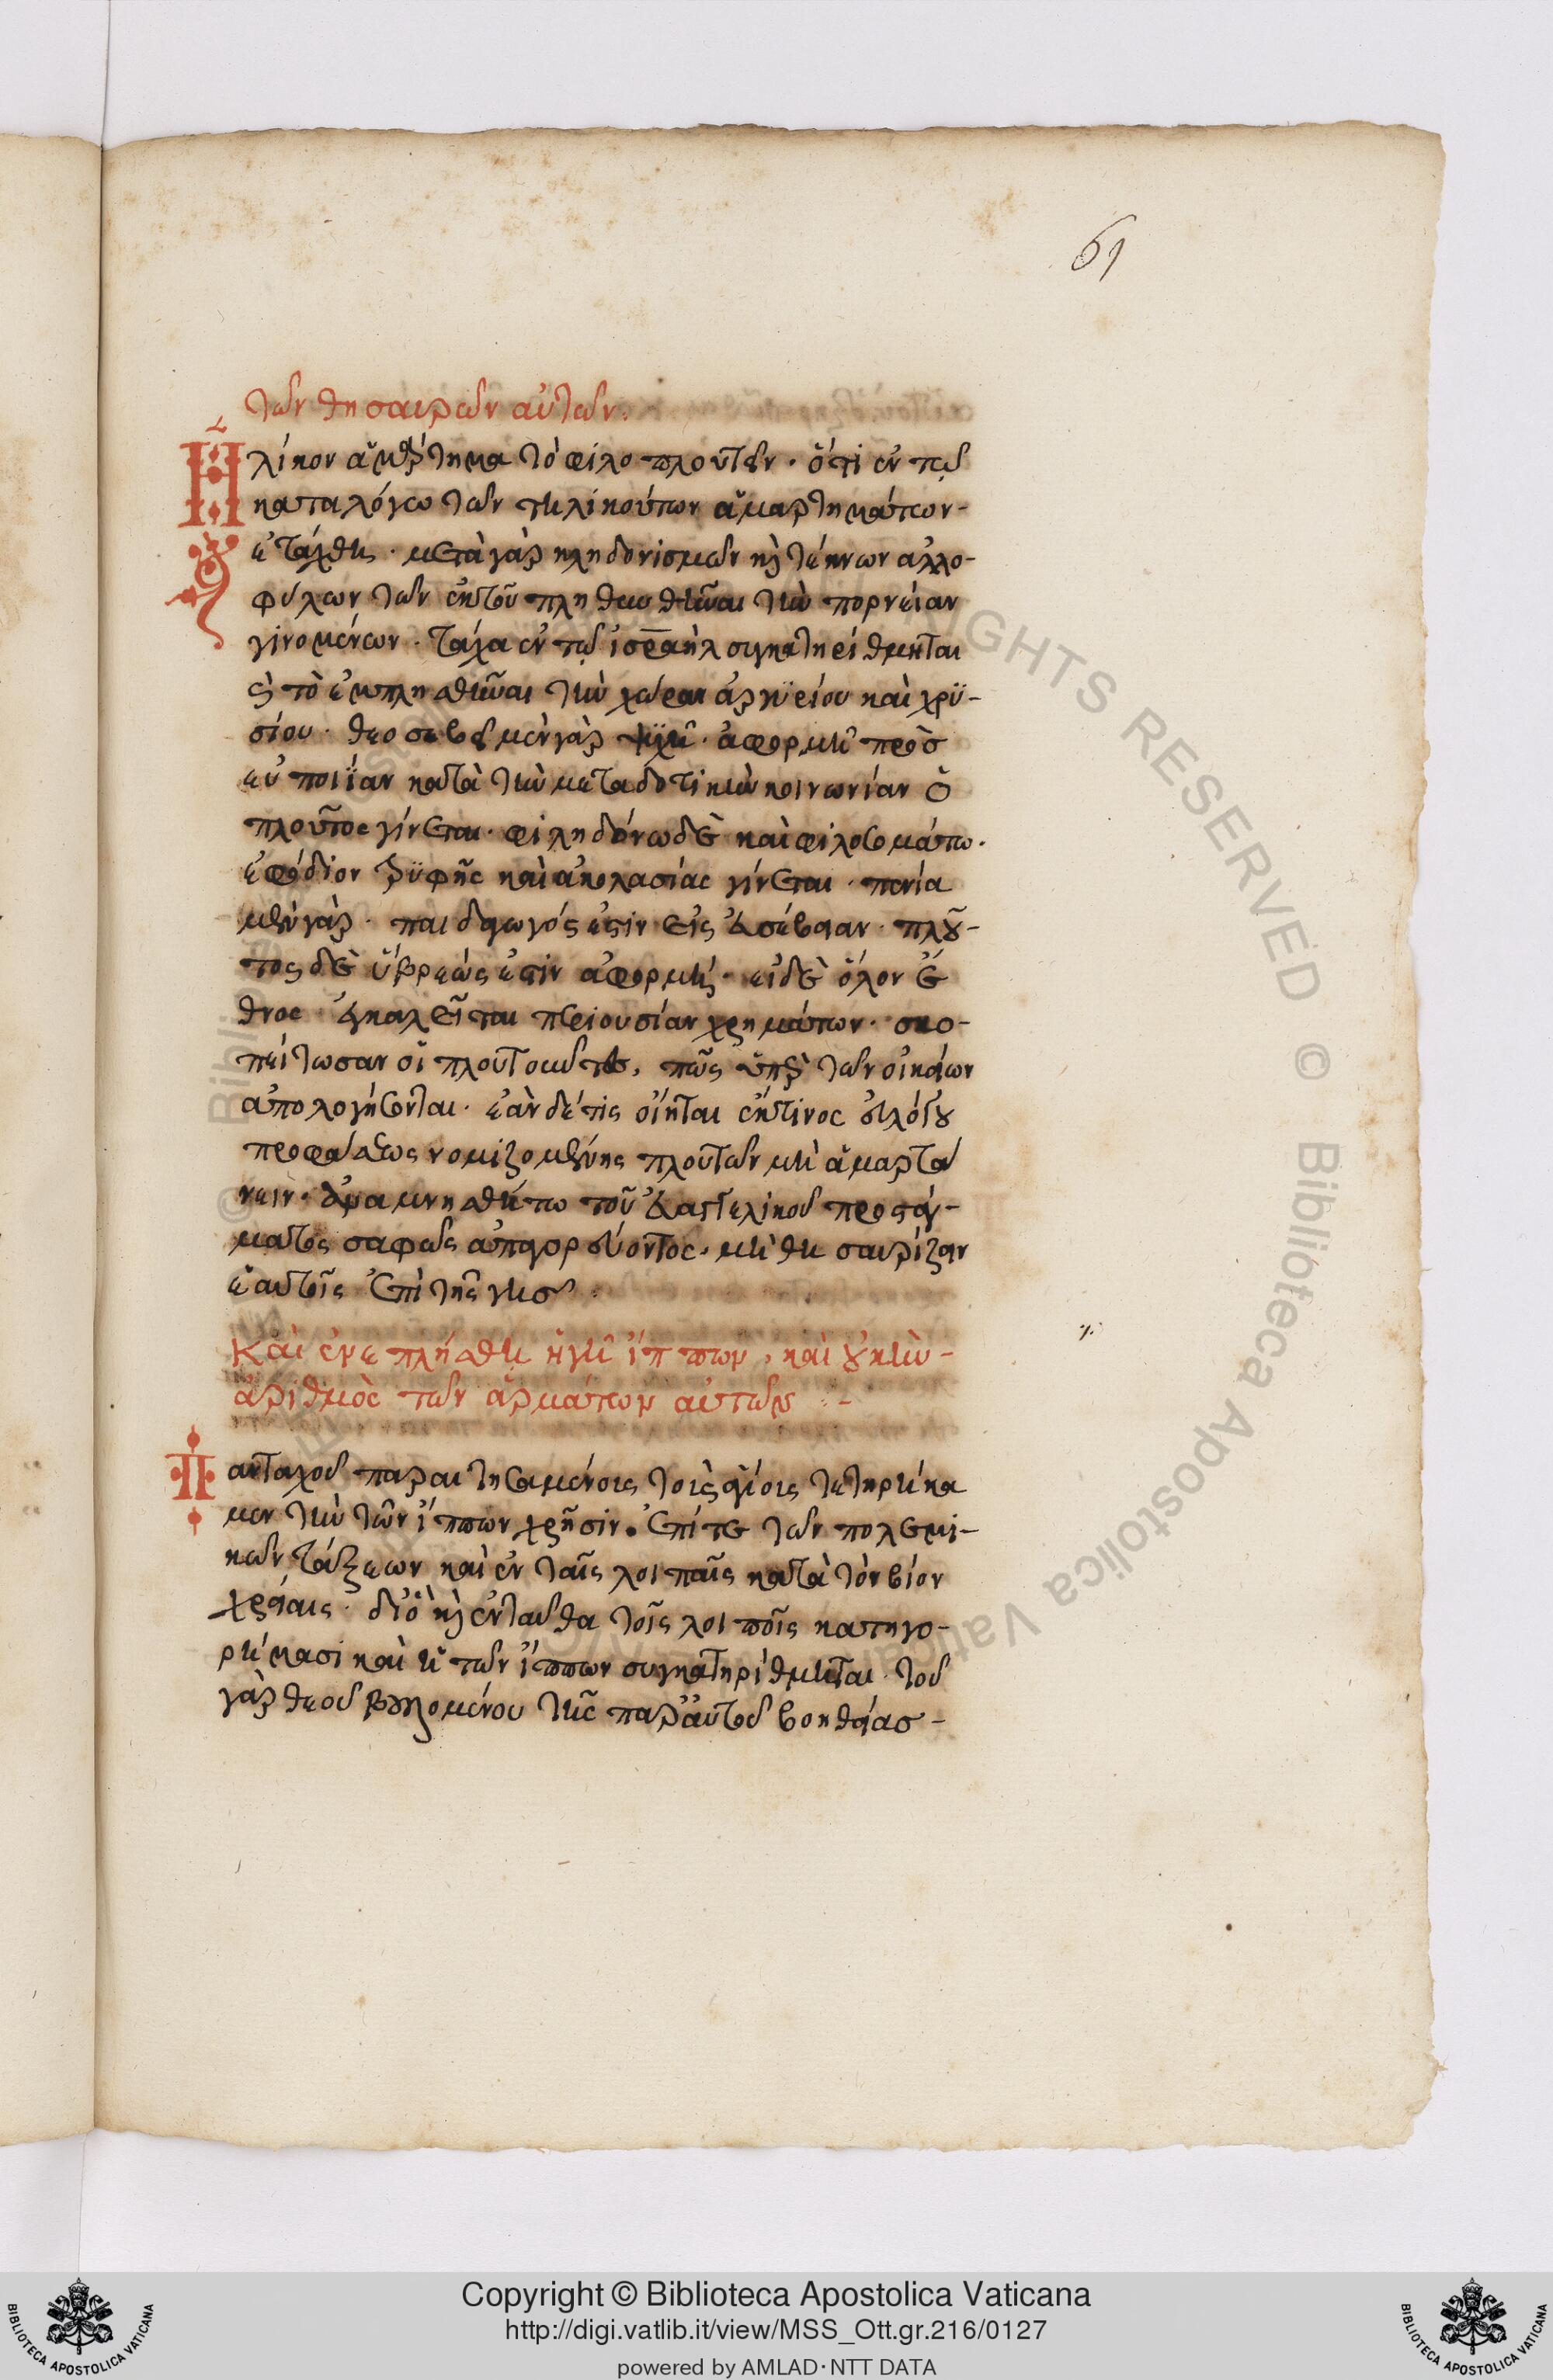 61
τῶν θησαυρῶν αὐτῶν.
Ἡλίκον ἁμάρτημα τὸ φιλοπλουτεῖν · ὅτι ἐν τῷ
καταλόγω τῶν τηλικούτων ἁμαρτημάτων-
ἐτάχθη · μετὰ γὰρ κληδονισμῶν κὶ τέκνων ἀλλο-
φύλων τῶν ἐκ τοῦ πληθυνθῆναι τὴν πορνείαν
γινομένων · τάχα ἐν τῷ ἰσραὴλ συγκατηρίθμηται
κὶ τὸ ἐμπλησθῆναι τὴν χώραν ἀργυρίου καὶ χρυ-
σίου · θεοσεβεῖ μὲν γὰρ ψυχῆ · ἀφορμὴ πρὸσ
εὐποιΐαν κατὰ τὴν μεταδοτικὴν κοινωνίαν ὁ
πλοῦτος γίνεται · φιληδόνω δὲ καὶ φιλοσωμάτω ·
ἐφόδιον τρυφῆς καὶ ἀκολασίας γίνεται · πενία
μὲν γὰρ · παιδαγωγός ἐστιν εἰς εὐσέβειαν · πλοῦ-
τος δὲ ὕβρεώς ἐστιν ἀφορμή · εἰ δὲ ὅλον ἔ
θνος ἐγκαλεῖται περιουσίαν χρημάτων · σκο-
πείτωσαν οἱ πλουτοῦντες, πῶς ὑπὲρ τῶν οἰκείων
ἀπολογήσονται · ἐὰν δέ τις οἴηται ἔκ τινος εὐλόγου
προφάσεως νομιζομένης πλουτῶν μὴ ἁμαρτά
νειν · ἀναμνησθήτω τοῦ εὐαγγελικοῦ προστάγ-
ματος σαφῶς ἀπαγορεύοντος · μὴ θησαυρίζειν
ἑαυτοῖς ἐπὶ τῆς γῆσ ·
Καὶ ἐνεπλήσθη ἡ γῆ ἵππων, καὶ οὐκ ἦν -
ἀριθμὸς τῶν ἁρμάτων αὐτῶν : -
Πανταχοῦ παραιτησαμένοις τοῖς ἁγίοις τετηρήκα
μεν τὴν τῶν ἵππων χρῆσιν · ἐπί τε τῶν πολεμι-
κῶν τάξεων καὶ ἐν ταῖς λοιπαῖς κατὰ τὸν βίον
χρείαις · διὸ κὶ ἐνταῦθα τοῖς λοιποῖς κατηγο-
ρήμασι καὶ ἡ τῶν ἵππων συγκατηρίθμηται · τοῦ
γὰρ θεοῦ βουλομένου τῆς παρ' αὐτοῦ βοηθείασ -
© Biblioteca Apostolica Vaticana
RIGHTS RESERVED © Biblioteca Apostolica Vaticana
BIBLIOTECA APOSTOLICA VATICANA
Copyright © Biblioteca Apostolica Vaticana
http://digi.vatlib.it/view/MSS_Ott.gr.216/0127
powered by AMLAD·NTT DATA
BIBLIOTECA APOSTOLICA VATICANA